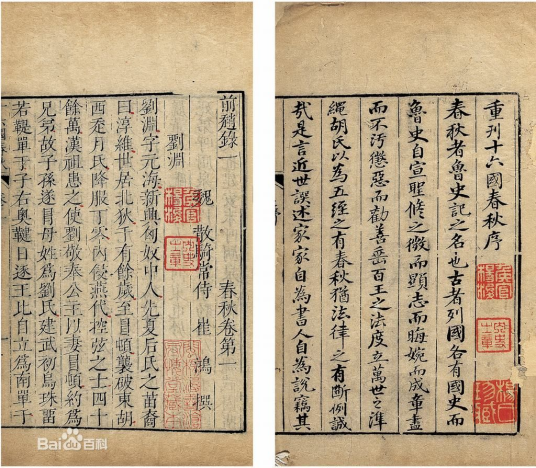 重刊十六國春秋序
春秋者魯史記之名也古者列國各有國史而
魯史自宣聖脩之微而顯志而晦婉而成章盡
而不汚懲惡而勸善垂百王之法度立萬世之準
繩胡氏以為五經之有春秋猶法律之有斷例誠
哉是言近世誤述家家自為書人自為說竊其
前趙錄一 春秋卷第一
魏 散騎常侍 崔 鴻 撰
劉淵
劉淵字元海新興匈奴中人先夏后氏之苗裔
曰淳維世居北狄千有餘歲至冒頓襲破東胡
西走月氏降服丁零內侵燕代控弦之士四十
餘萬漢祖患之使劉敬奉公主以妻冒頓約爲
兄弟故子孫遂冒母姓爲劉氏建武初烏珠留
若鞮單于子右奧鞬日逐王比自立爲南單于
Bai百科